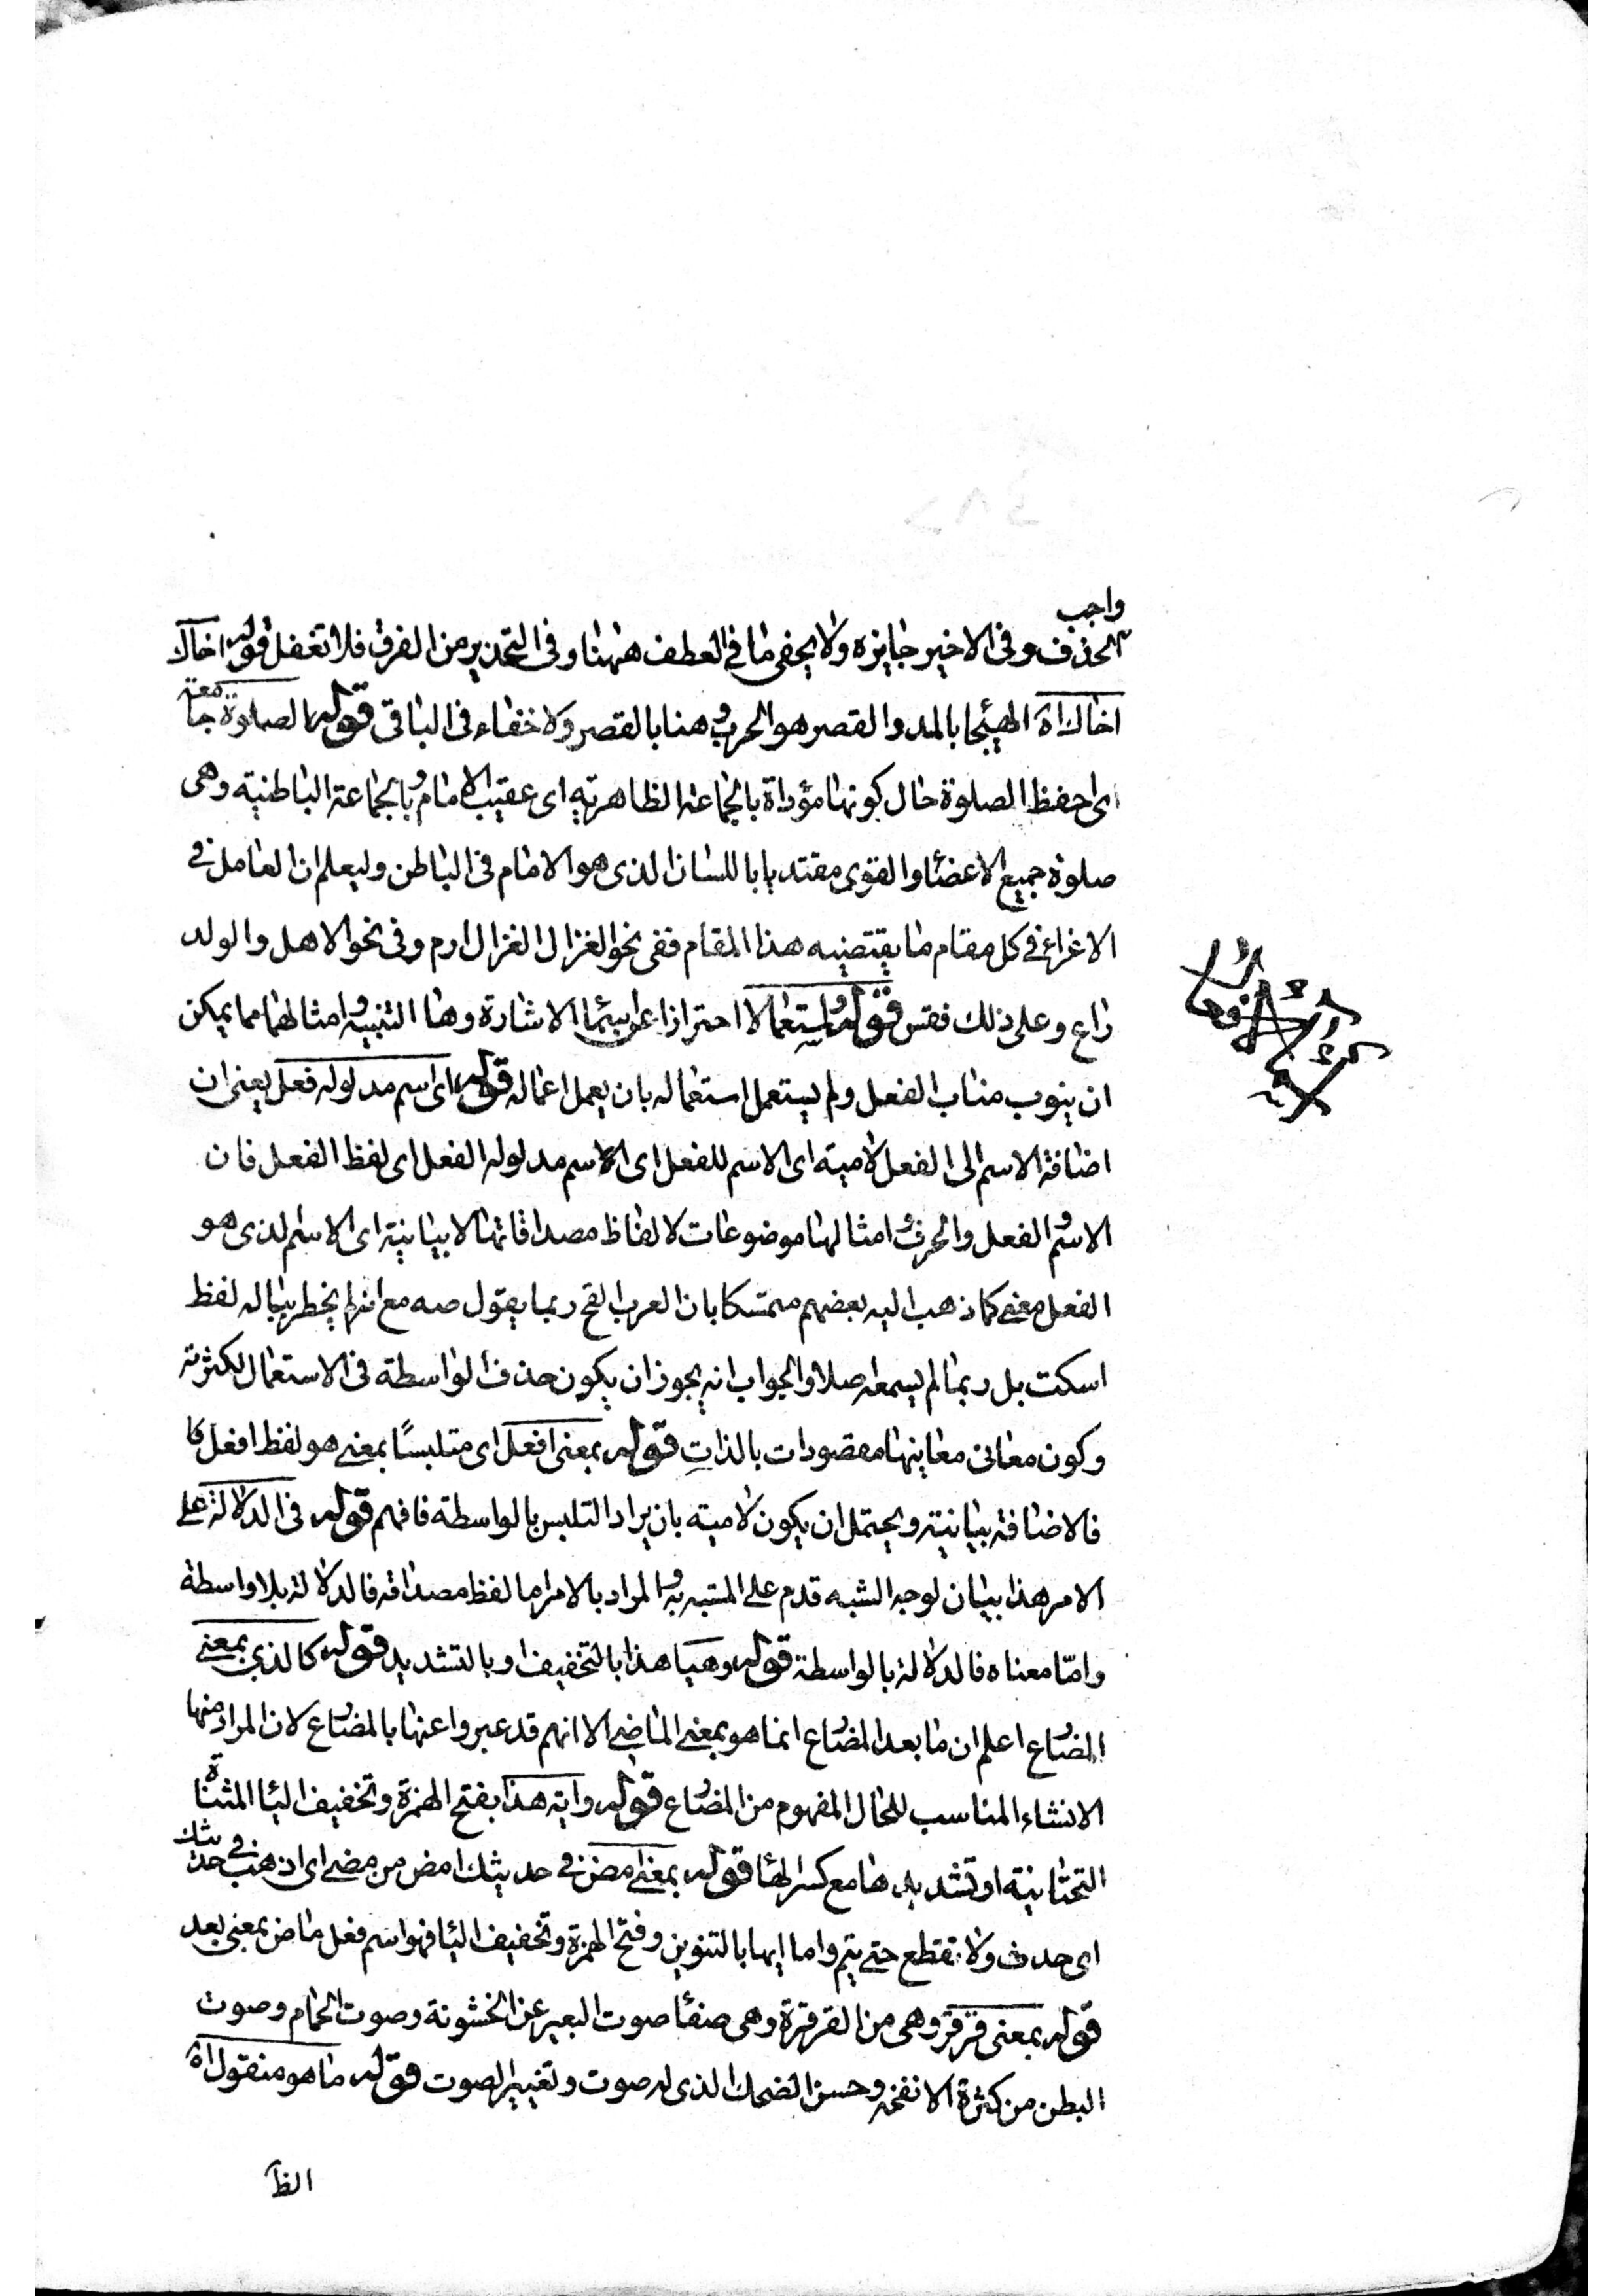 واجب
الحذف وفى الاخير جايزه ولا يخفى ما فى العطف ههنا وفى التحذير من الفرق فلا تغفل قوله اخاك
اخاك اه الهيجا بالمد والقصر هو الحرب وهنا بالقصر ولا خفاء فى الباقى قوله الصلوة جامعة
اى احفظ الصلوة حال كونها مؤداة بالجماعة الظاهرية اى عقيب الامام وبالجماعة الباطنية وهى
صلوة جميع الاعضا والقوى مقتديا باللسان الذى هو الامام فى الباطن وليعلم ان العامل فى
الاغراء فى كل مقام ما يقتضيه هذا المقام ففى نحو الغزال الغزال ارم وفى نحو الاهل والولد
راع وعلى ذلك فقس قوله واستعمالا احترازا عن اسماء الاشارة وها التنبيه وامثالهما مما يمكن
ان ينوب مناب الفعل ولم يستعمل استعماله بان يعمل اعماله قوله اى اسم مدلوله فعل يعنى ان
اضافة الاسم الى الفعل لامية اى الاسم للفعل اى الاسم مدلوله الفعل اى لفظ الفعل فان
الاسم والفعل والحرف وامثالها موضوعات لالفاظ مصداقاتها لا بيانية اى الاسم الذى هو
الفعل معنى كما ذهب اليه بعضهم متمسكا بان العرب القح ربما يقول صه مع انه لم يخطر بباله لفظ
اسكت بل ربما لم يسمعه اصلا والجواب انه يجوز ان يكون حذف الواسطة فى الاستعمال لكثرته
وكون معانى معاينها مقصودات بالذات قوله بمعنى افعل اى متلبسًا بمعنى هو لفظ افعل كا
فالاضافة بيانية ويحتمل ان يكون لامية بان يراد التلبس بالواسطة فافهم قوله فى الدلالة على
الامر هذا بيان لوجه الشبه قدم على المشبه به والمراد بالامر اما لفظ مصداقه فالدلالة بلا واسطة
وامّا معناه فالدلالة بالواسطة قوله وهيا هذا بالتخفيف او بالتشديد قوله كالذى بمعنى
المضارع اعلم ان ما بعد المضارع انما هو بمعنى الماضى الا انهم قد عبروا عنها بالمضارع لان المراد منها
الانشاء المناسب للحال المفهوم من المضارع قوله وايه هذا بفتح الهمزة وتخفيف اليا المثناة
التحتانية او تشديدها مع كسر الها قوله بمعنى امض فى حديثك امض من مضى اى اذهب فى حديثك
اى حدث ولا تقطع حتى يتم واما ايها بالتنوين وفتح الهمزة وتخفيف اليا فهو اسم فعل ماض بمعنى بعد
قوله بمعنى قرقر وهى من القرقرة وهى صفا صوت البعير عن الخشونة وصوت الحمام وصوت
البطن من كثرة الانفخه وحسن الضحك الذى له صوت وتغيير الصوت قوله ما هو منقول اه
الظا